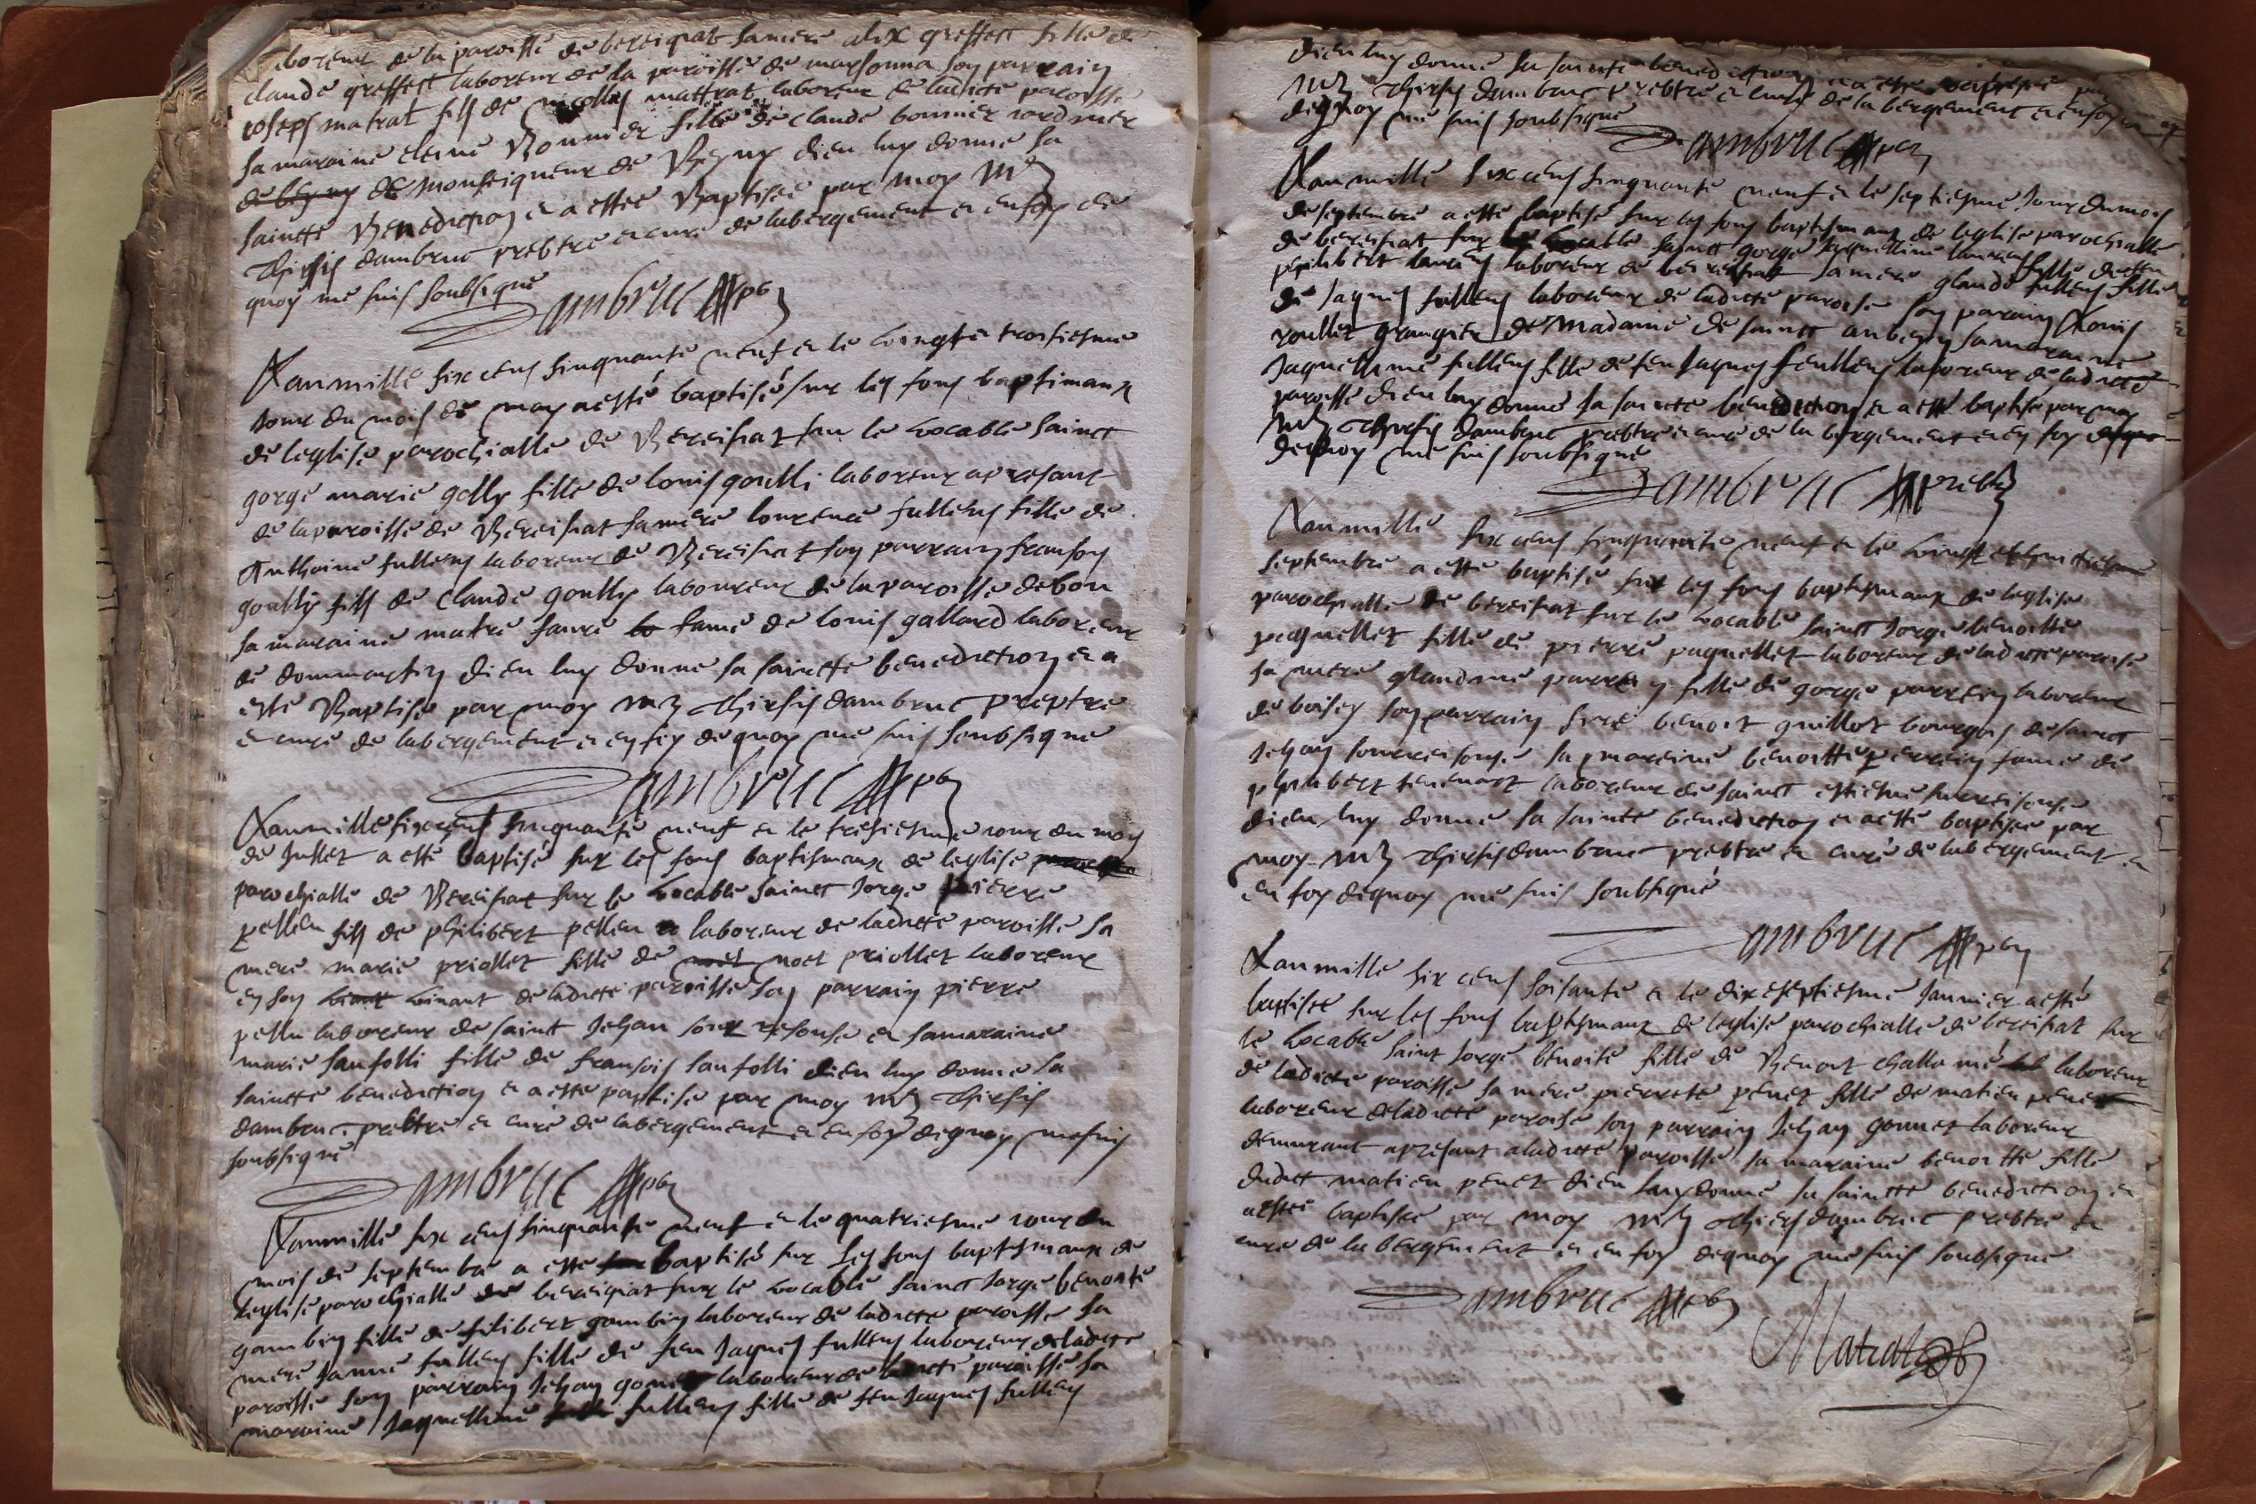 laboreur de la paroisse de bereiziat sa mere alix greffect fille de
claude greffect laboreur de la paroisse de marsonna son parrain
ioseps matrat fils de nicollas mattrat laboreur de ladicte paroisse
sa maraine eterne Bonnier fille de claude bonnier
de monseigneur de dieu luy donne sa
saincte Benediction et a estee Baptisee par moy Mre
Thirsis dambruc prebtre et curé de labergement et en foy de
quoy me suis soubsigné
Dambruc pbr
Lan mille six cens sinquante neuf et le vingt et troisiesme
jour du mois de may a esté baptisé sur les fons baptimaux
de leglise parochialle de Bereisiat sur le vocable sainct
gorge marie golly fille de louis goulli laboreur apresant
de la paroisse de Bereisiat sa mere lourence fullens fille de
Anthoine fullens laboreur de Bereisiat son parrain fransois
goully fils de Claude goully laboureur de la paroisse de bou
sa maraine matre faure fame de louis gallard laboreur
de dommartin dieu luy donne sa saincte benediction et a
esté Baptisé par moy Mre Thirsis dambruc preptre
et curé de labergement et en foy de quoy me suis soubsigné
Dambruc pbr
Lan mille six cens sinquante neuf et le tresiesme jour du moys
de Jullet a esté baptisé sur les fons baptismaux de leglise
parochialle de Bereisiat sur le vocable sainct Jorge pierre
pellen fils de philibert pellen laboreur de ladicte paroisse sa
mere marie priollet fille de noel priollet laboreur
en son vivant de ladicte paroisse son parrain pierre
pellu laboreur de saint Jehan sour resouse et sa maraine
marie sanfolli fille de fransois sanfolli dieu luy donne sa
saincte benediction et a esté baptisé par moy Mre Thirsis
dambruc prebtre et curé de labergement et en foy de quoy me suis
soubsigné
Dambruc pbr
Lan mille six cens sinquante neuf et le quatriesme jour du
mois de septembre a esté baptisé sur les fons baptismaux de
leglise parochialle de bereiziat sur le vocable sainct Jorge benoite
gambin fille de filibert gambin laboreur de ladicte paroisse sa
mere Janne fullens fille de feu Jaques fullens laboreur de ladicte
paroisse son parrain Jehan gonet laboreur de ladicte paroisse sa
maraine Jaquelline fullens fille de feu Jaques fullens
dieu luy donne sa saincte benediction et a esté baptisé par
Mre Thirsis dambruc prebtre et curé de la bergement et en foy
de quoy me suis soubsigné
Dambruc pbr
Lan mille six cens sinquante neuf et le septiesme jour du mois
de septembre a esté baptisé sur les fons baptismaux de leglise parochialle
de bereisiat sur vocable sainct gorge Jaquelline laurens fille de
philibert laurens laboreur de bereisiat sa mere glaude fullens fille
de Jaques fullens laboreur de ladicte paroise son parain Louis
roullet grangier de Madame de sainct aubein sa maraine
Jaquelline fullens fille de feu Jaques feullens laboreur de ladicte
paroisse dieu luy donne sa saincte benediction et a esté baptisé par moy
Mre Thirsis dambruc prebtre et curé de la bergement et en foy
de quoy me suis soubsigné
Dambruc prebtre
Lan mille six cens sinquante neuf et le vingt et huictiesme
septembre a esté baptisé sur les fons baptismaux de leglise
parochialle de bereisiat sur le vocable sainct Jorge benoitte
paquellet fille de pierre paquellet laboreur de ladicte paroise
sa mere glaudine parrein fille de gorge parrein laboreur
de boisey son parrain sire benoit guillot bourgois de sainct
Jehan sourresouse sa maraine benoitte perrein fame de
philibert tenenart laboreur de sainct estiesne surreisouse
dieu luy donne sa sainte benediction et a esté baptisee par
moy Mre Thirsis dambruc prebtre et curé de labergement et
en foy de quoy me suis soubsigné
Dambruc pbr
Lan mille six cens soisante et le dix et septiesme Janvier a esté
baptisée sur les fons baptismaux de leglise parochialle de bereisiat sur
le vocable saint Jorge benoite fille de Benoit challamé laboreur
de ladicte paroisse sa mere pierrete penet fille de matieu penet
laboreur de ladicte paroise son parrain Jehan gonnet laboreur
demurant apresant a ladicte paroisse sa maraine benoitte fille
dudict matieu penet dieu luy donne sa saincte benediction et
a estee baptisée par moy Mre Thiers dambruc prebtre et
curé de la bergement et en foy de quoy me suis soubsigné
Dambruc pbr
Matrat pbr